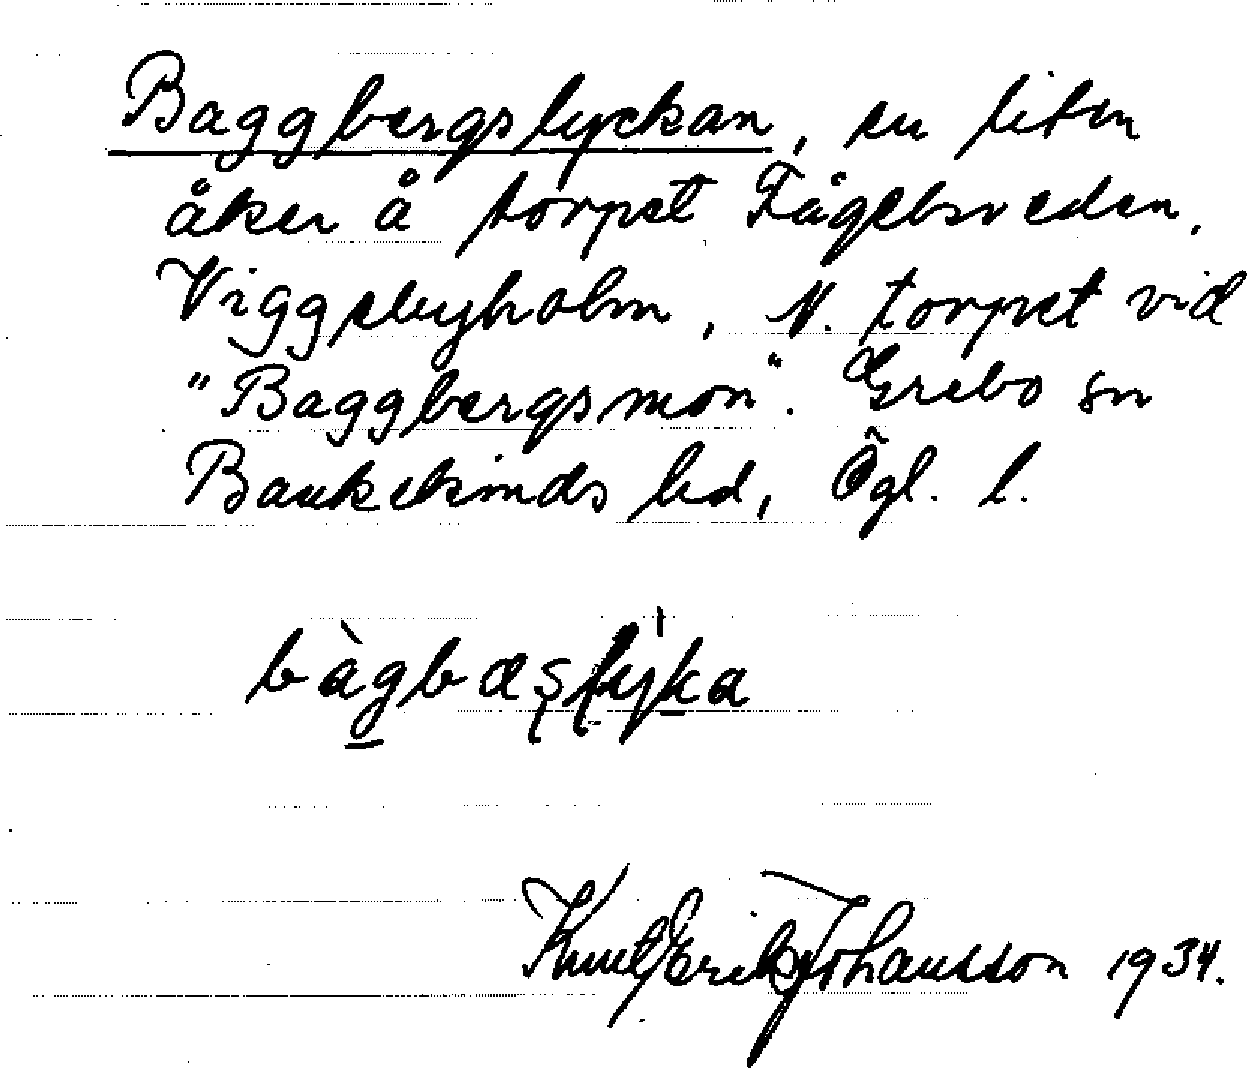 Baggbergslyckan, en liten
åker å torpet Fågelsveden,
Viggebyholm, N. torpet vid
"Baggbergsmon". Grebo sn
Bankekinds hd, Ögl. l.
bàgbæs̩lyka
Knut Erik Johansson 1934.